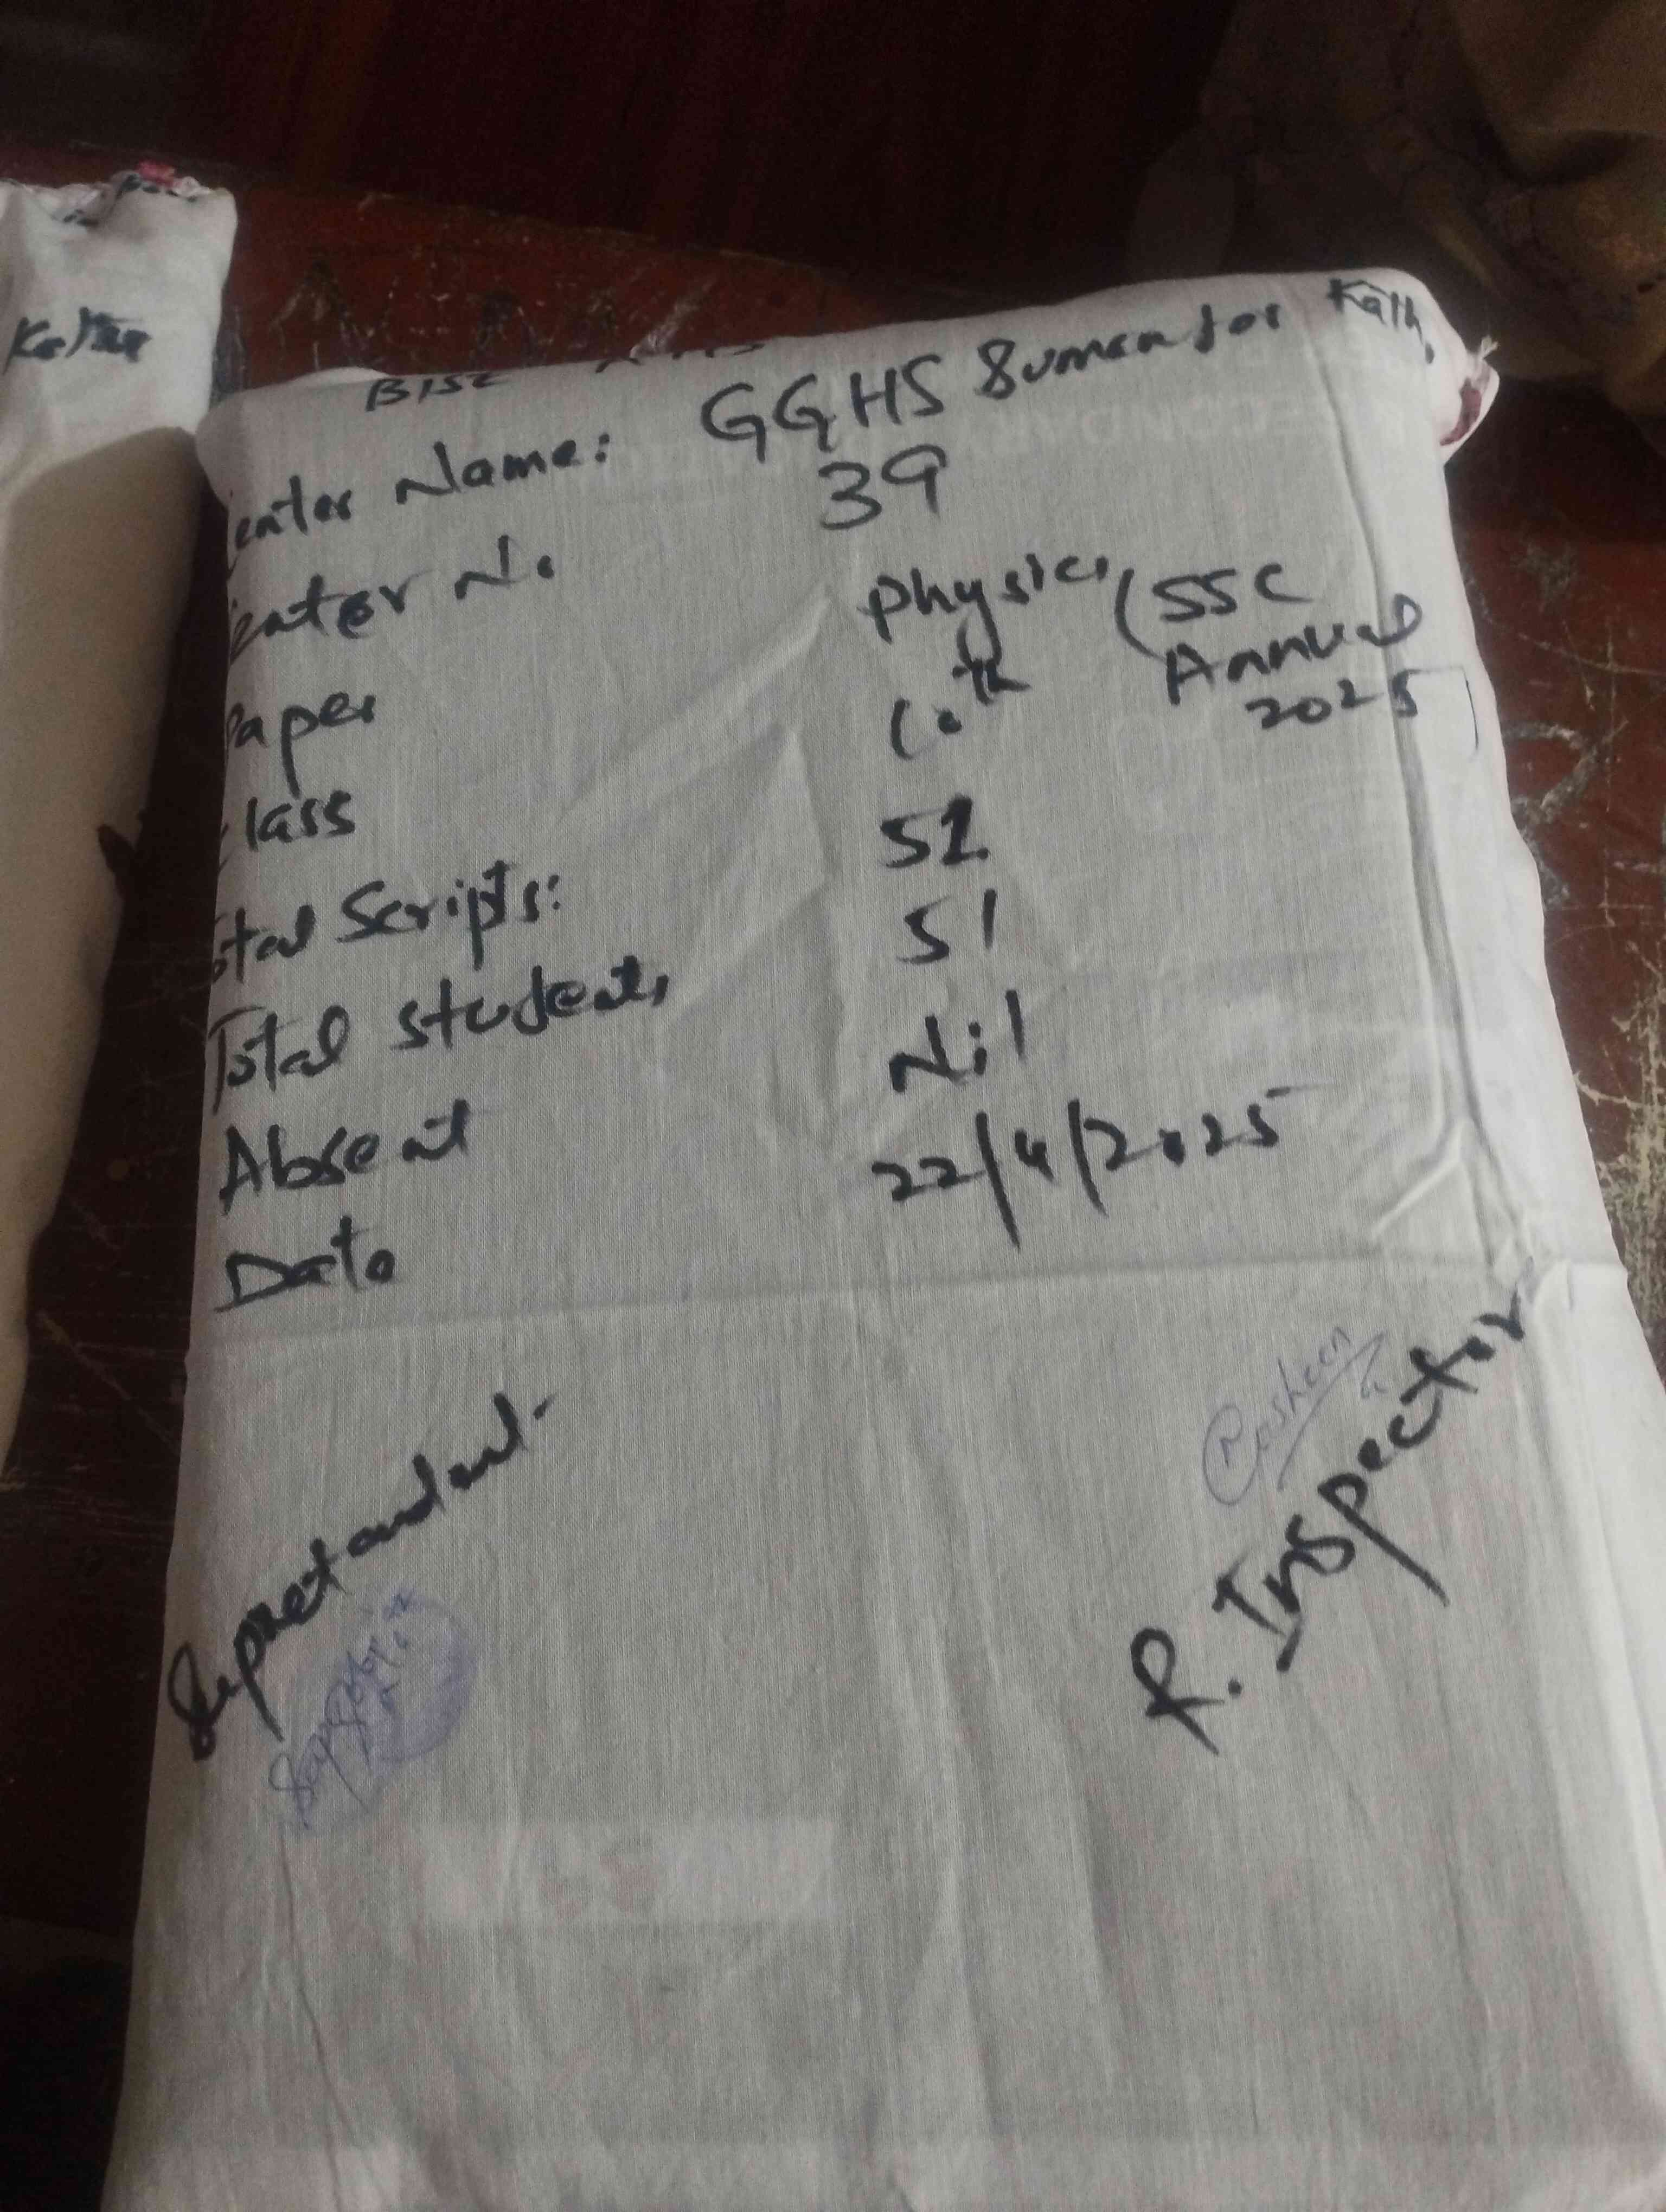 BISE
Center Name: GGHS Sumentor Kath
Center No 39
Paper Physics (SSC Annual 2025)
Class 10th
Total Scripts: 51
Total Students 51
Absent Nil
Date 22/4/2025
Supretandent.
Rosheen
R. Inspector